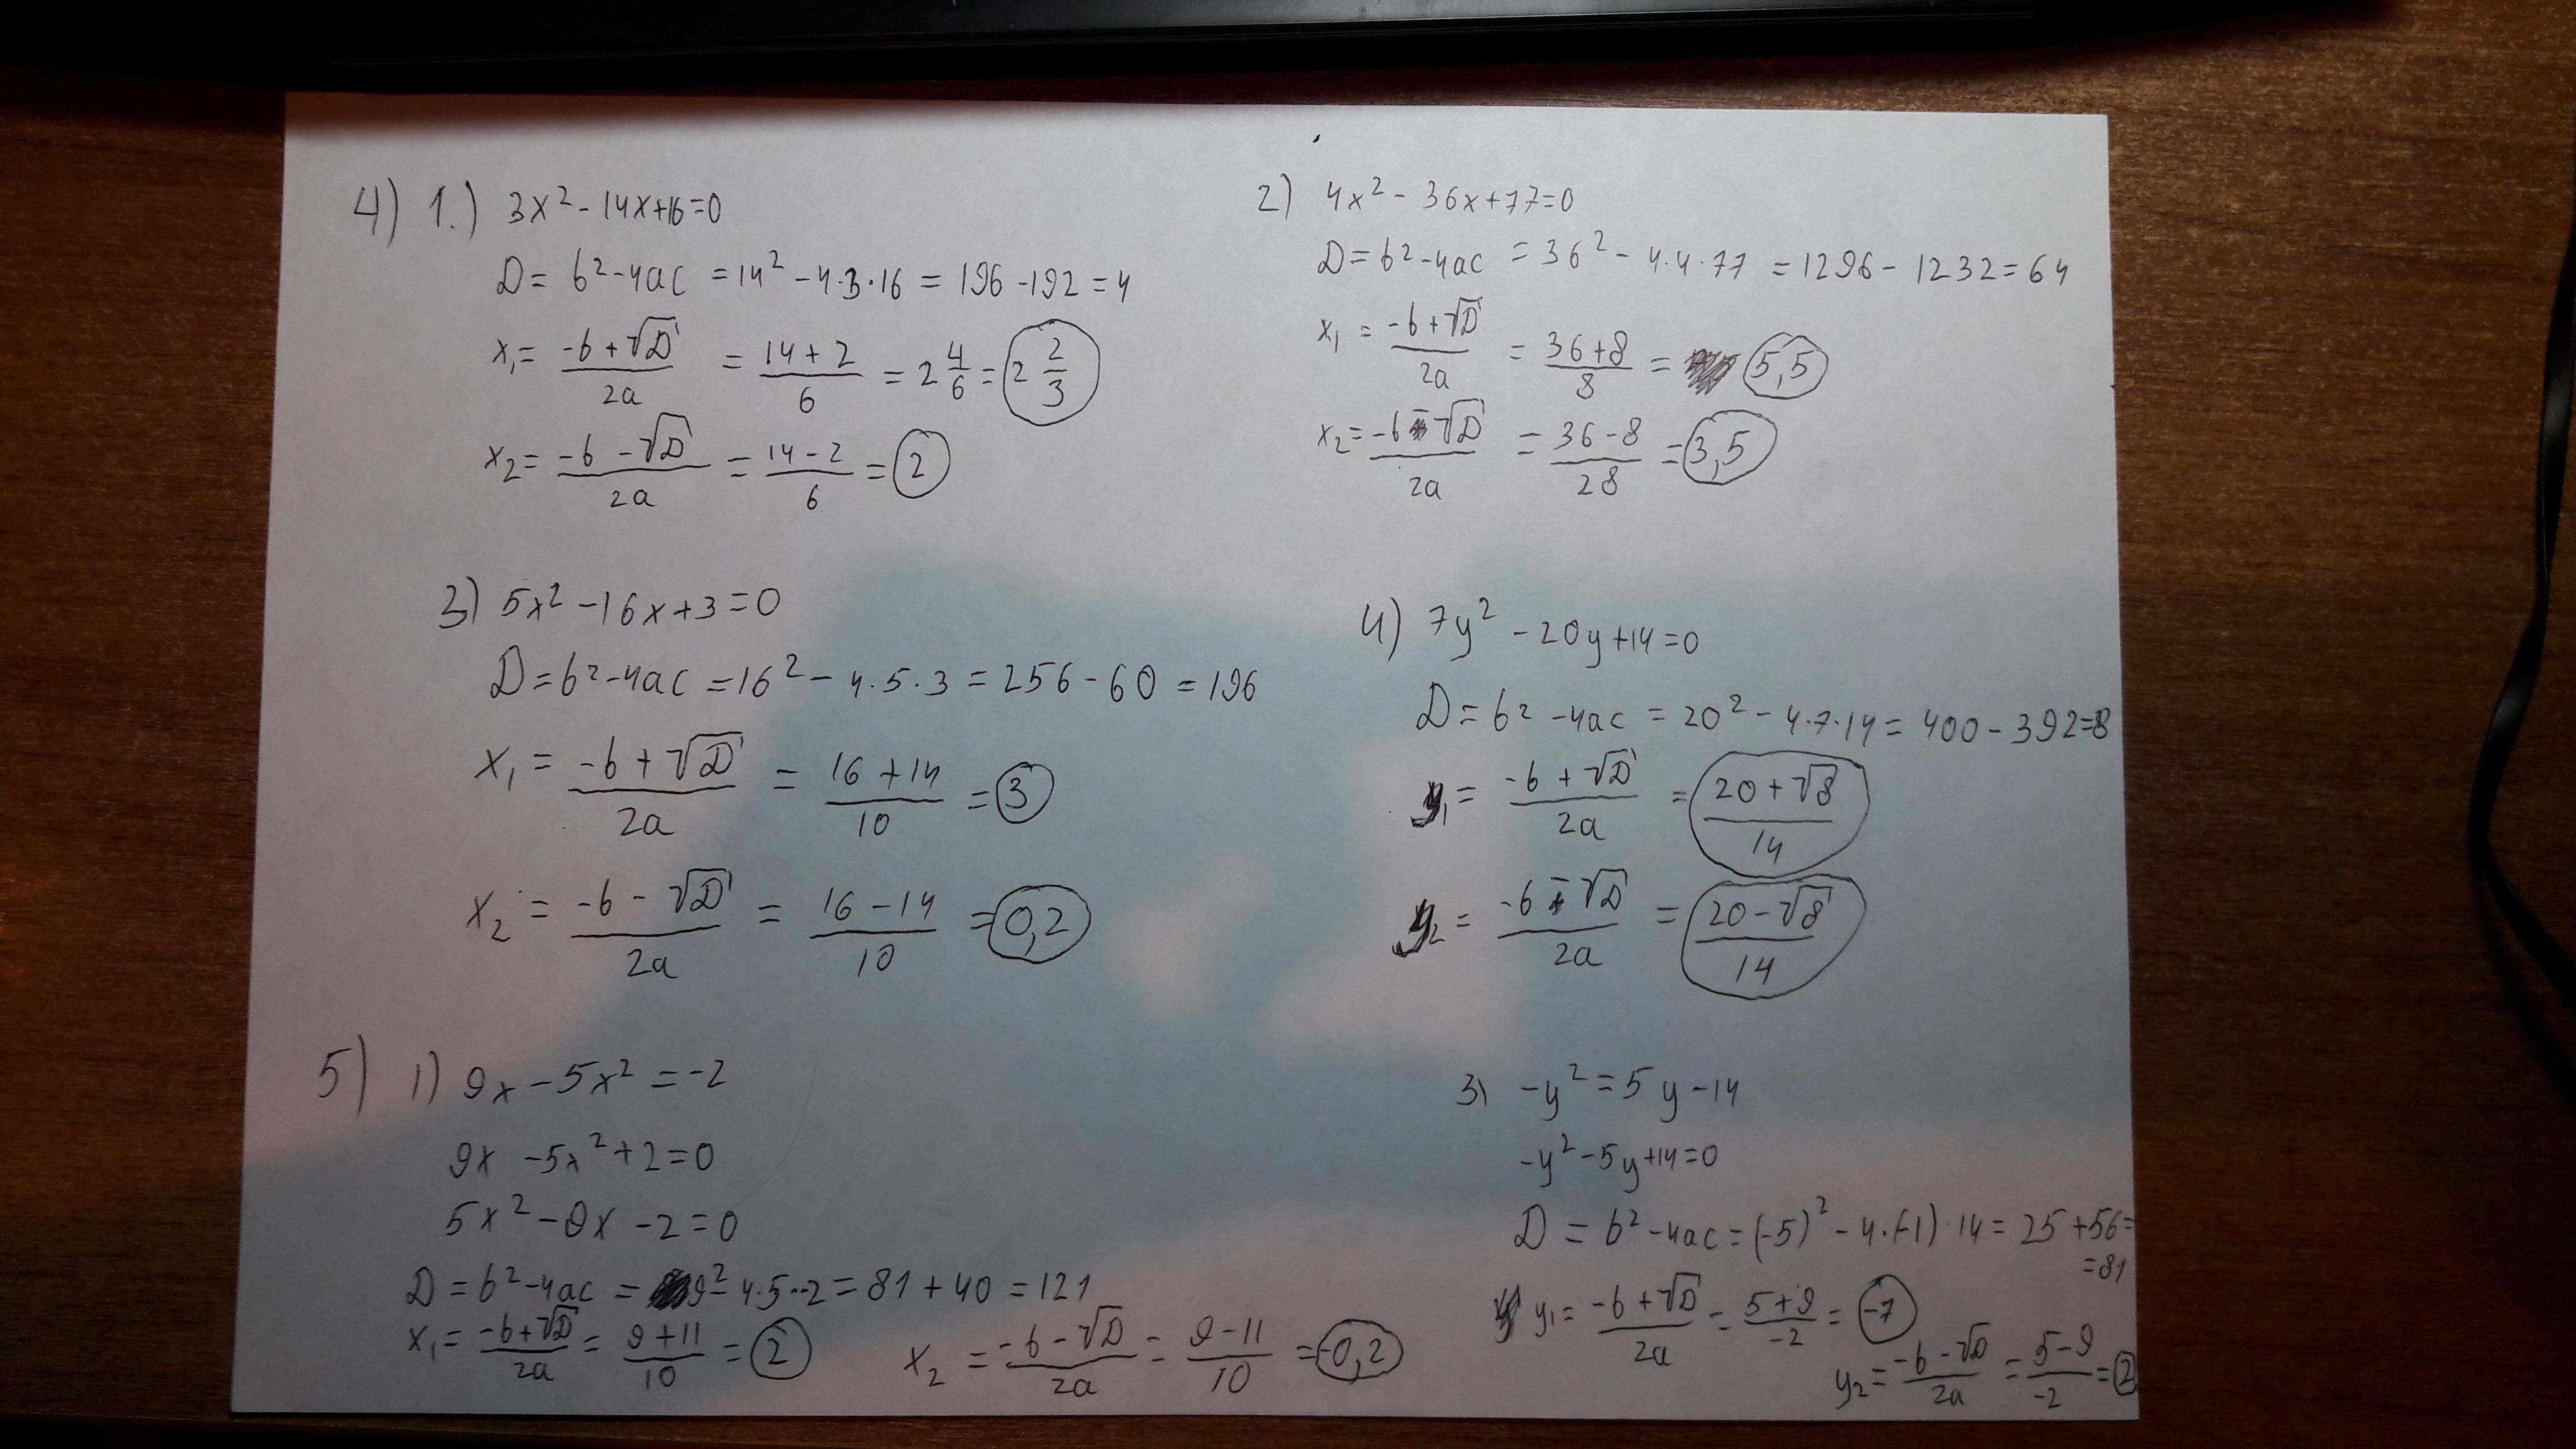 4) 1.) 3x² - 14x + 16 = 0
D = b² - 4ac = 14² - 4·3·16 = 196 - 192 = 4
x₁ = (-b + √D)/2a = (14 + 2)/6 = 2 4/6 = 2 2/3
x₂ = (-b - √D)/2a = (14 - 2)/6 = 2
2) 4x² - 36x + 77 = 0
D = b² - 4ac = 36² - 4·4·77 = 1296 - 1232 = 64
x₁ = (-b + √D)/2a = (36 + 8)/8 = 5,5
x₂ = (-b - √D)/2a = (36 - 8)/28 = 3,5
3) 5x² - 16x + 3 = 0
D = b² - 4ac = 16² - 4·5·3 = 256 - 60 = 196
x₁ = (-b + √D)/2a = (16 + 14)/10 = 3
x₂ = (-b - √D)/2a = (16 - 14)/10 = 0,2
4) 7y² - 20y + 14 = 0
D = b² - 4ac = 20² - 4·7·14 = 400 - 392 = 8
y₁ = (-b + √D)/2a = (20 + √8)/14
y₂ = (-b - √D)/2a = (20 - √8)/14
5) 1) 9x - 5x² = -2
9x - 5x² + 2 = 0
5x² - 9x - 2 = 0
D = b² - 4ac = 9² - 4·5·-2 = 81 + 40 = 121
x₁ = (-b + √D)/2a = (9 + 11)/10 = 2
x₂ = (-b - √D)/2a = (9 - 11)/10 = -0,2
3) -y² = 5y - 14
-y² - 5y + 14 = 0
D = b² - 4ac = (-5)² - 4·(-1)·14 = 25 + 56 =
= 81
y₁ = (-b + √D)/2a = (5 + 9)/-2 = -7
y₂ = (-b - √D)/2a = (5 - 9)/-2 = 2